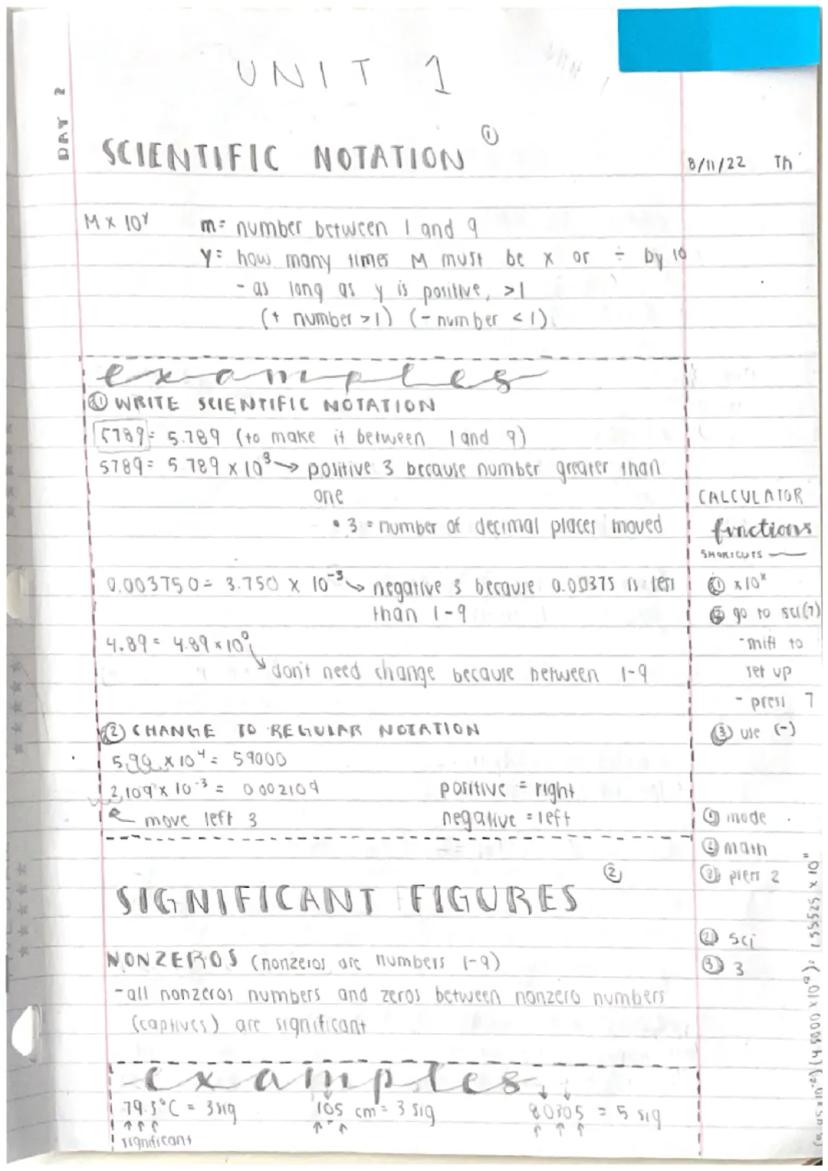 UNIT 1
DAY 2
SCIENTIFIC NOTATION ①
8/11/22 Th
M x 10^y m= number between 1 and 9
y= how many times M must be x or ÷ by 10
- as long as y is positive, >1
(+ number >1) (- number <1)
examples
① WRITE SCIENTIFIC NOTATION
5789= 5.789 (to make it between 1 and 9)
5789= 5.789 x 10^3 → positive 3 because number greater than
one
• 3 = number of decimal places moved
0.003750= 3.750 x 10^-3 → negative 3 because 0.00375 is less
than 1-9
4.89= 4.89 x 10^0
don't need change because between 1-9
② CHANGE TO REGULAR NOTATION
5.90 x 10^4 = 59000
2.109 x 10^-3 = 0.002109 positive = right
move left 3 negative = left
CALCULATOR
functions
SHORTCUTS
① x10^x
② go to sci(7)
- shift to
set up
- press 7
③ use (-)
① mode
② main
③ press 2
② sci
③ 3
SIGNIFICANT FIGURES ②
NONZEROS (nonzeros are numbers 1-9)
- all nonzeros numbers and zeros between nonzero numbers
(captives) are significant
examples
79.5°C = 3 sig 105 cm = 3 sig 80305 = 5 sig
significant